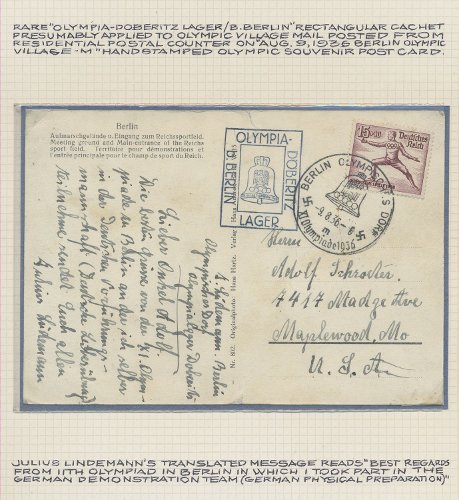 RARE "OLYMPIA-DOBERITZ LAGER/B.BERLIN" RECTANGULAR CACHET
PRESUMABLY APPLIED TO OLYMPIC VILLAGE MAIL POSTED FROM
RESIDENTIAL POSTAL COUNTER ON "AUG. 9, 1936 BERLIN OLYMPIC
VILLAGE - M" HAND STAMPED OLYMPIC SOUVENIR POST CARD.
Berlin
Aufmarschgelände u. Eingang zum Reichssportfeld.
Meeting ground and Main-entrance of the Reichs
sport field. Territoire pour démonstrations et
l'entrée principale pour le champ de sport du Reich.
OLYMPIA-
DÖBERITZ
LAGER
B. BERLIN
Deutsches
Reich
BERLIN OLYMPISCHES DORF
9.8.36.-8
m
XI. Olympiade 1936
Lieber Onkel Adolf.
Die besten Grüsse von der XI. Olym-
piade in Berlin an der ich selber
in der Deutschen Vorführungs-
mannschaft (Deutsche Leibesübung)
teilnehme sendet Euch allen
Julius Lindemann
J. Lindemann. Berlin
Olympisches Dorf
Olympialager Döberitz
Nr. 802. Originalphoto Hans Hartz. Verlag Hans
Herrn
Adolf Schroeter
7417 Madge Ave
Maplewood, Mo
U.S.A
JULIUS LINDEMANN'S TRANSLATED MESSAGE READS "BEST REGARDS
FROM 11TH OLYMPIAD IN BERLIN IN WHICH I TOOK PART IN THE
GERMAN DEMONSTRATION TEAM (GERMAN PHYSICAL PREPARATION)"